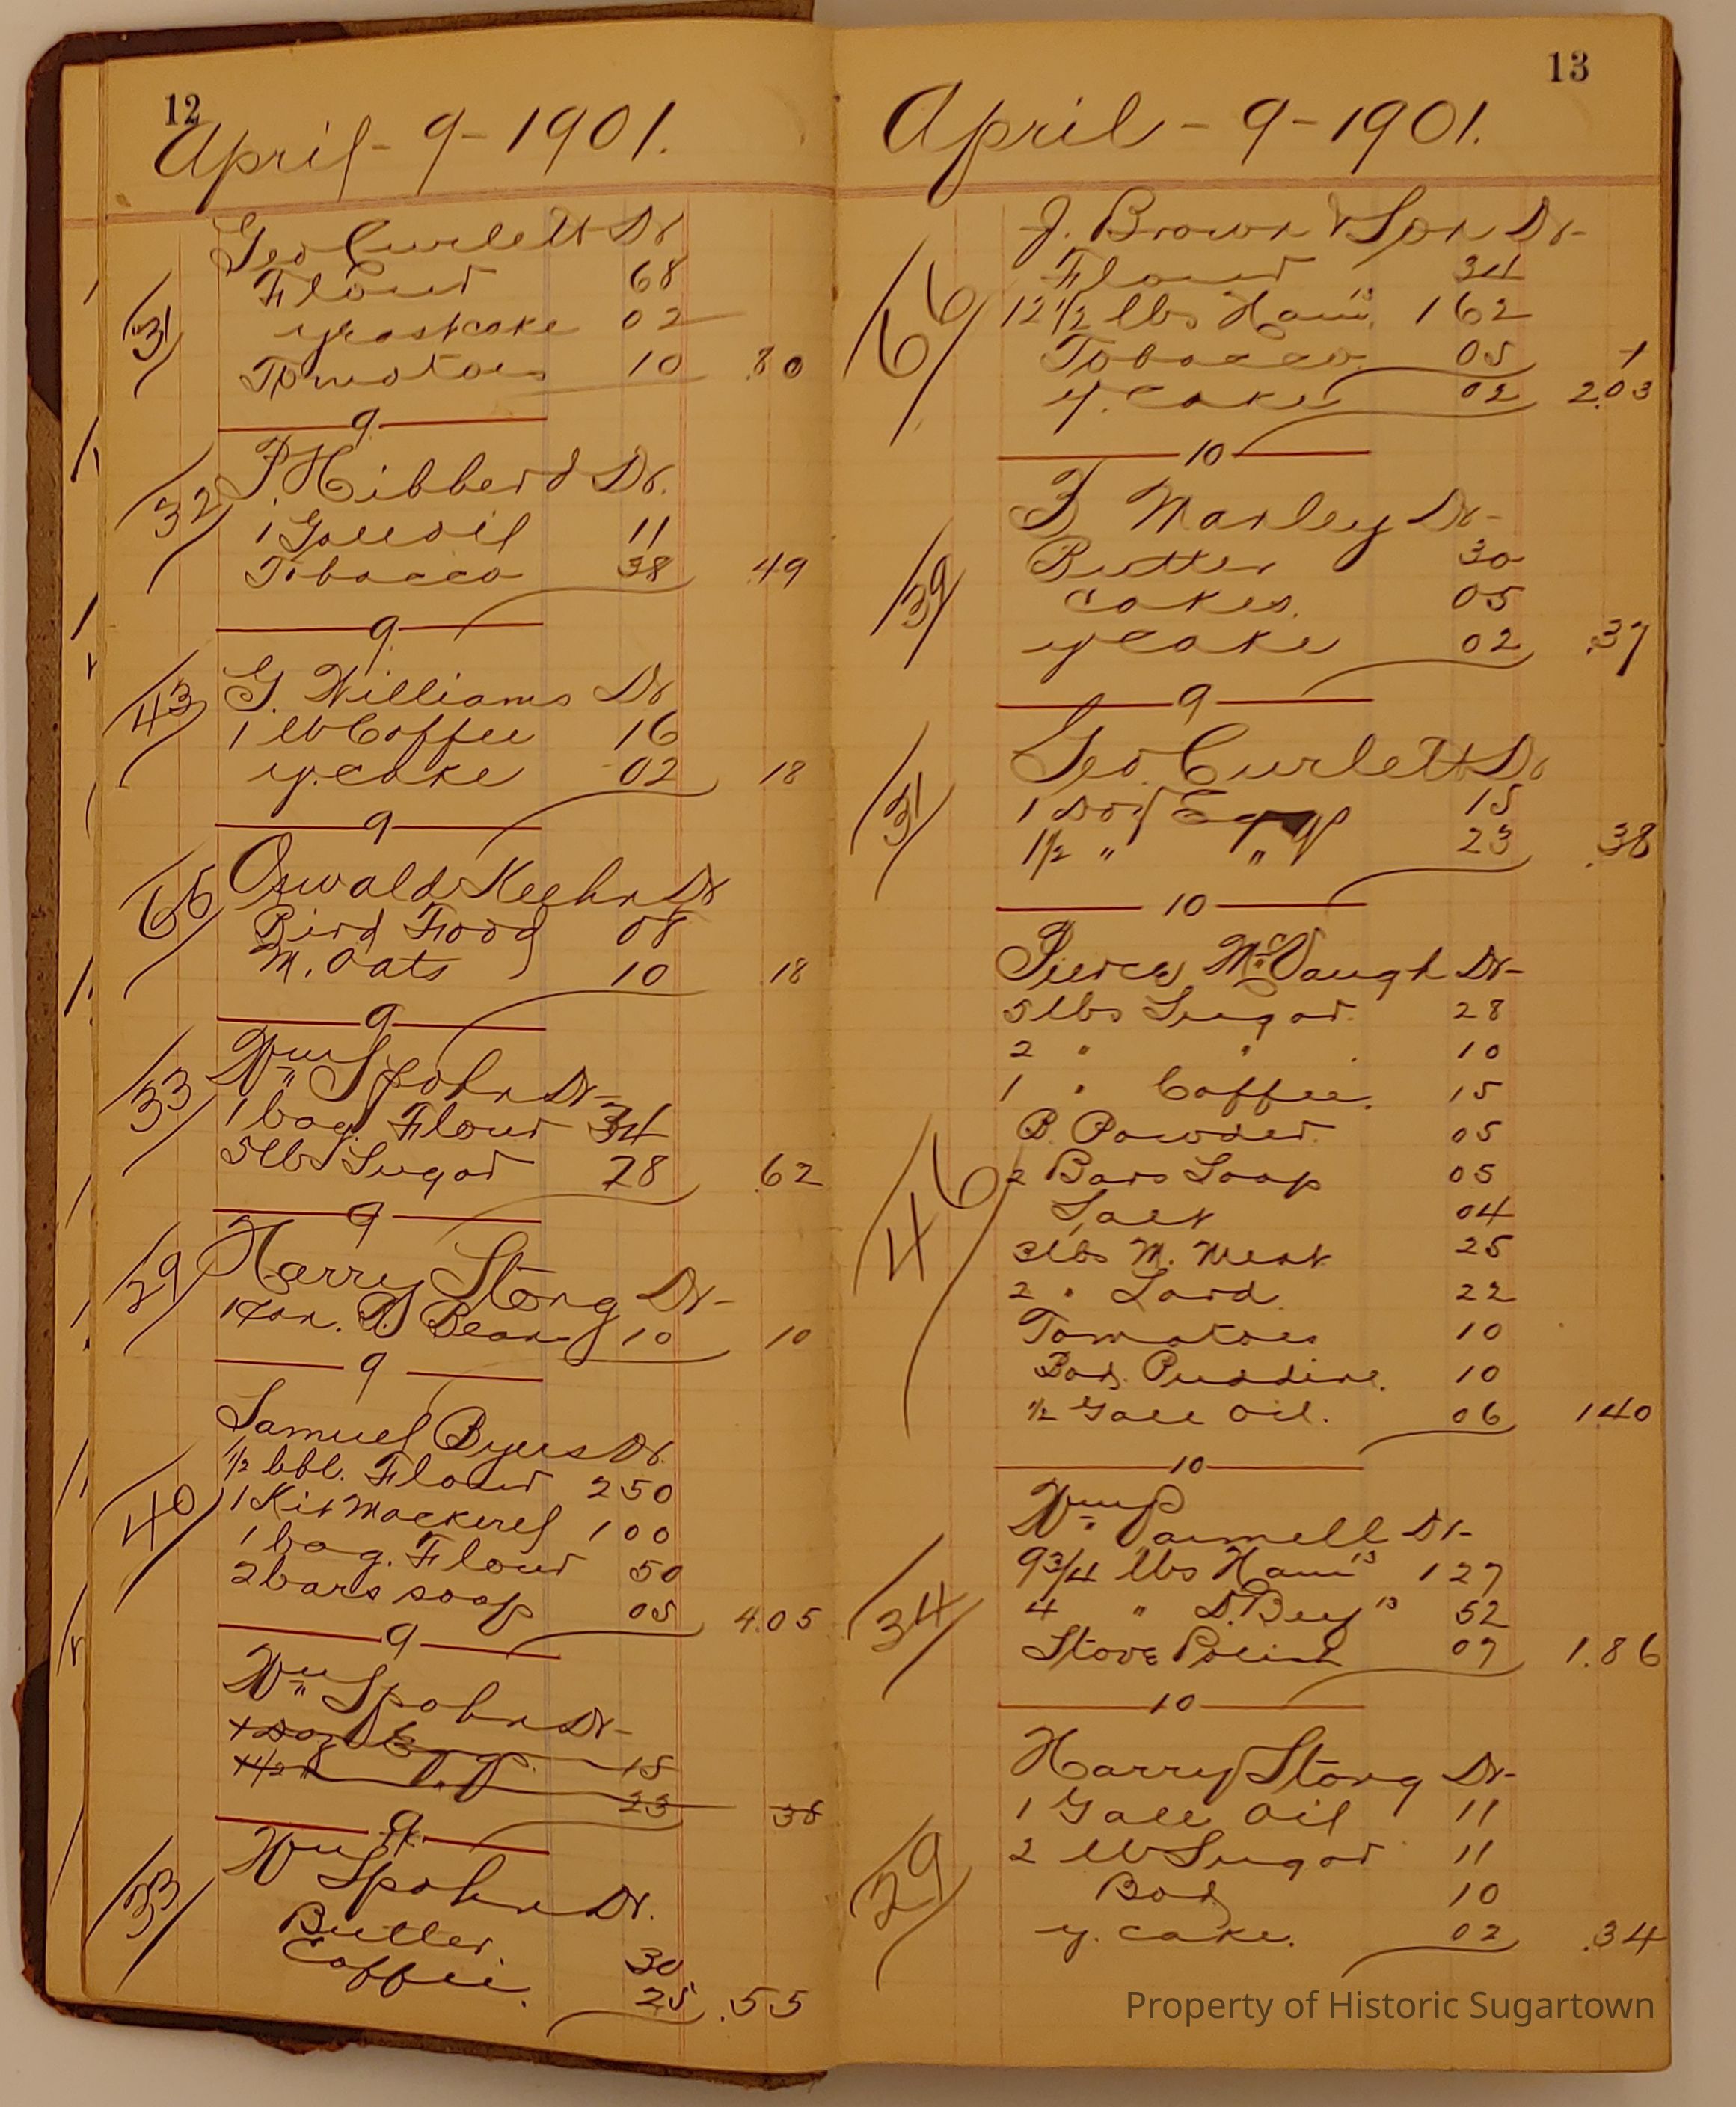 12
April - 9 - 1901.
Geo Curlett Dr
31
Flour 68
yeastcake 02
Tomatoes 10 .80
9
P. Hibberd Dr.
32
1 Gall oil 11
Tobacco 38 .49
9
43
G. Williams Dr
1 lb Coffee 16
y. cake 02 18
9
65
Oswald Keehn Dr
Bird Food 08
M. Oats 10 .18
9
33
Wm Spohn Dr-
1 bag Flour 34
5 lbs Sugar 28 .62
9
29
Harry Stong Dr-
1 Can. B Beans 10 10
9
Samuel Byers Dr.
1/2 bbl. Flour 250
40
1 Kit Mackerel 100
1 bag. Flour 50
2 bars soap 05 4.05
9
Wm Spohn Dr-
1 Doz Eggs 15
1 1/2 " " 23 38
9
33
Wm Spohn Dr.
Butter. 30
Coffee. 25 .55
13
April - 9 - 1901.
J. Brown & Son Dr-
66
Flour 34
12 1/2 lbs Ham 13 162
Tobacco 05
y. cake 02 2.03
10
Marley Dr-
39
Butter 30
cakes. 05
y Cake 02 .37
9
Geo. Curlett Dr
31
1 Doz Eggs 15
1 1/2 " " 23 .38
10
Pierce McVaugh Dr-
5 lbs Sugar. 28
2 " " 10
1 " Coffee. 15
46
B. Powder. 05
2 Bars Soap 05
Salt 04
3 lbs M. Meat 25
2 " Lard 22
Tomatoes 10
Pudding. 10
1/2 Gall Oil. 06 1.40
10
Wm P Parnell Dr-
34
9 3/4 lbs Ham 13 127
4 " D. Beef 13 52
Stove Polish 07 1.86
10
Harry Stong Dr-
29
1 Gall Oil 11
2 lb Sugar 11
10
y. cake. 02 .34
Property of Historic Sugartown